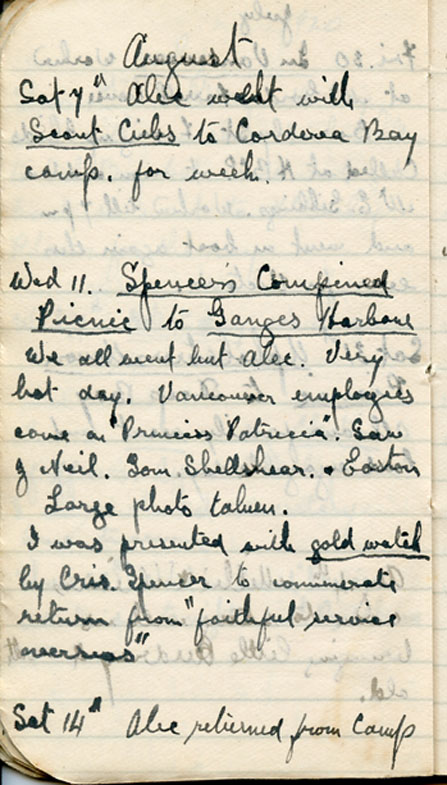 August
Sat 7th Alec went with
Scout Cubs to Cordova Bay
camp. for week.
Wed 11. Spencer's Compined
Picnic to Ganges Harbour
We all went but Alec. Very
hot day. Vancouver employees
came on "Princess Patricia". Saw
J Neil. Tom Shellshear. & Easton
Large photo taken.
I was presented with gold watch
by Cris. Spencer to commerate
return from "faithful service
overseas"
Sat 14th Alec returned from Camp